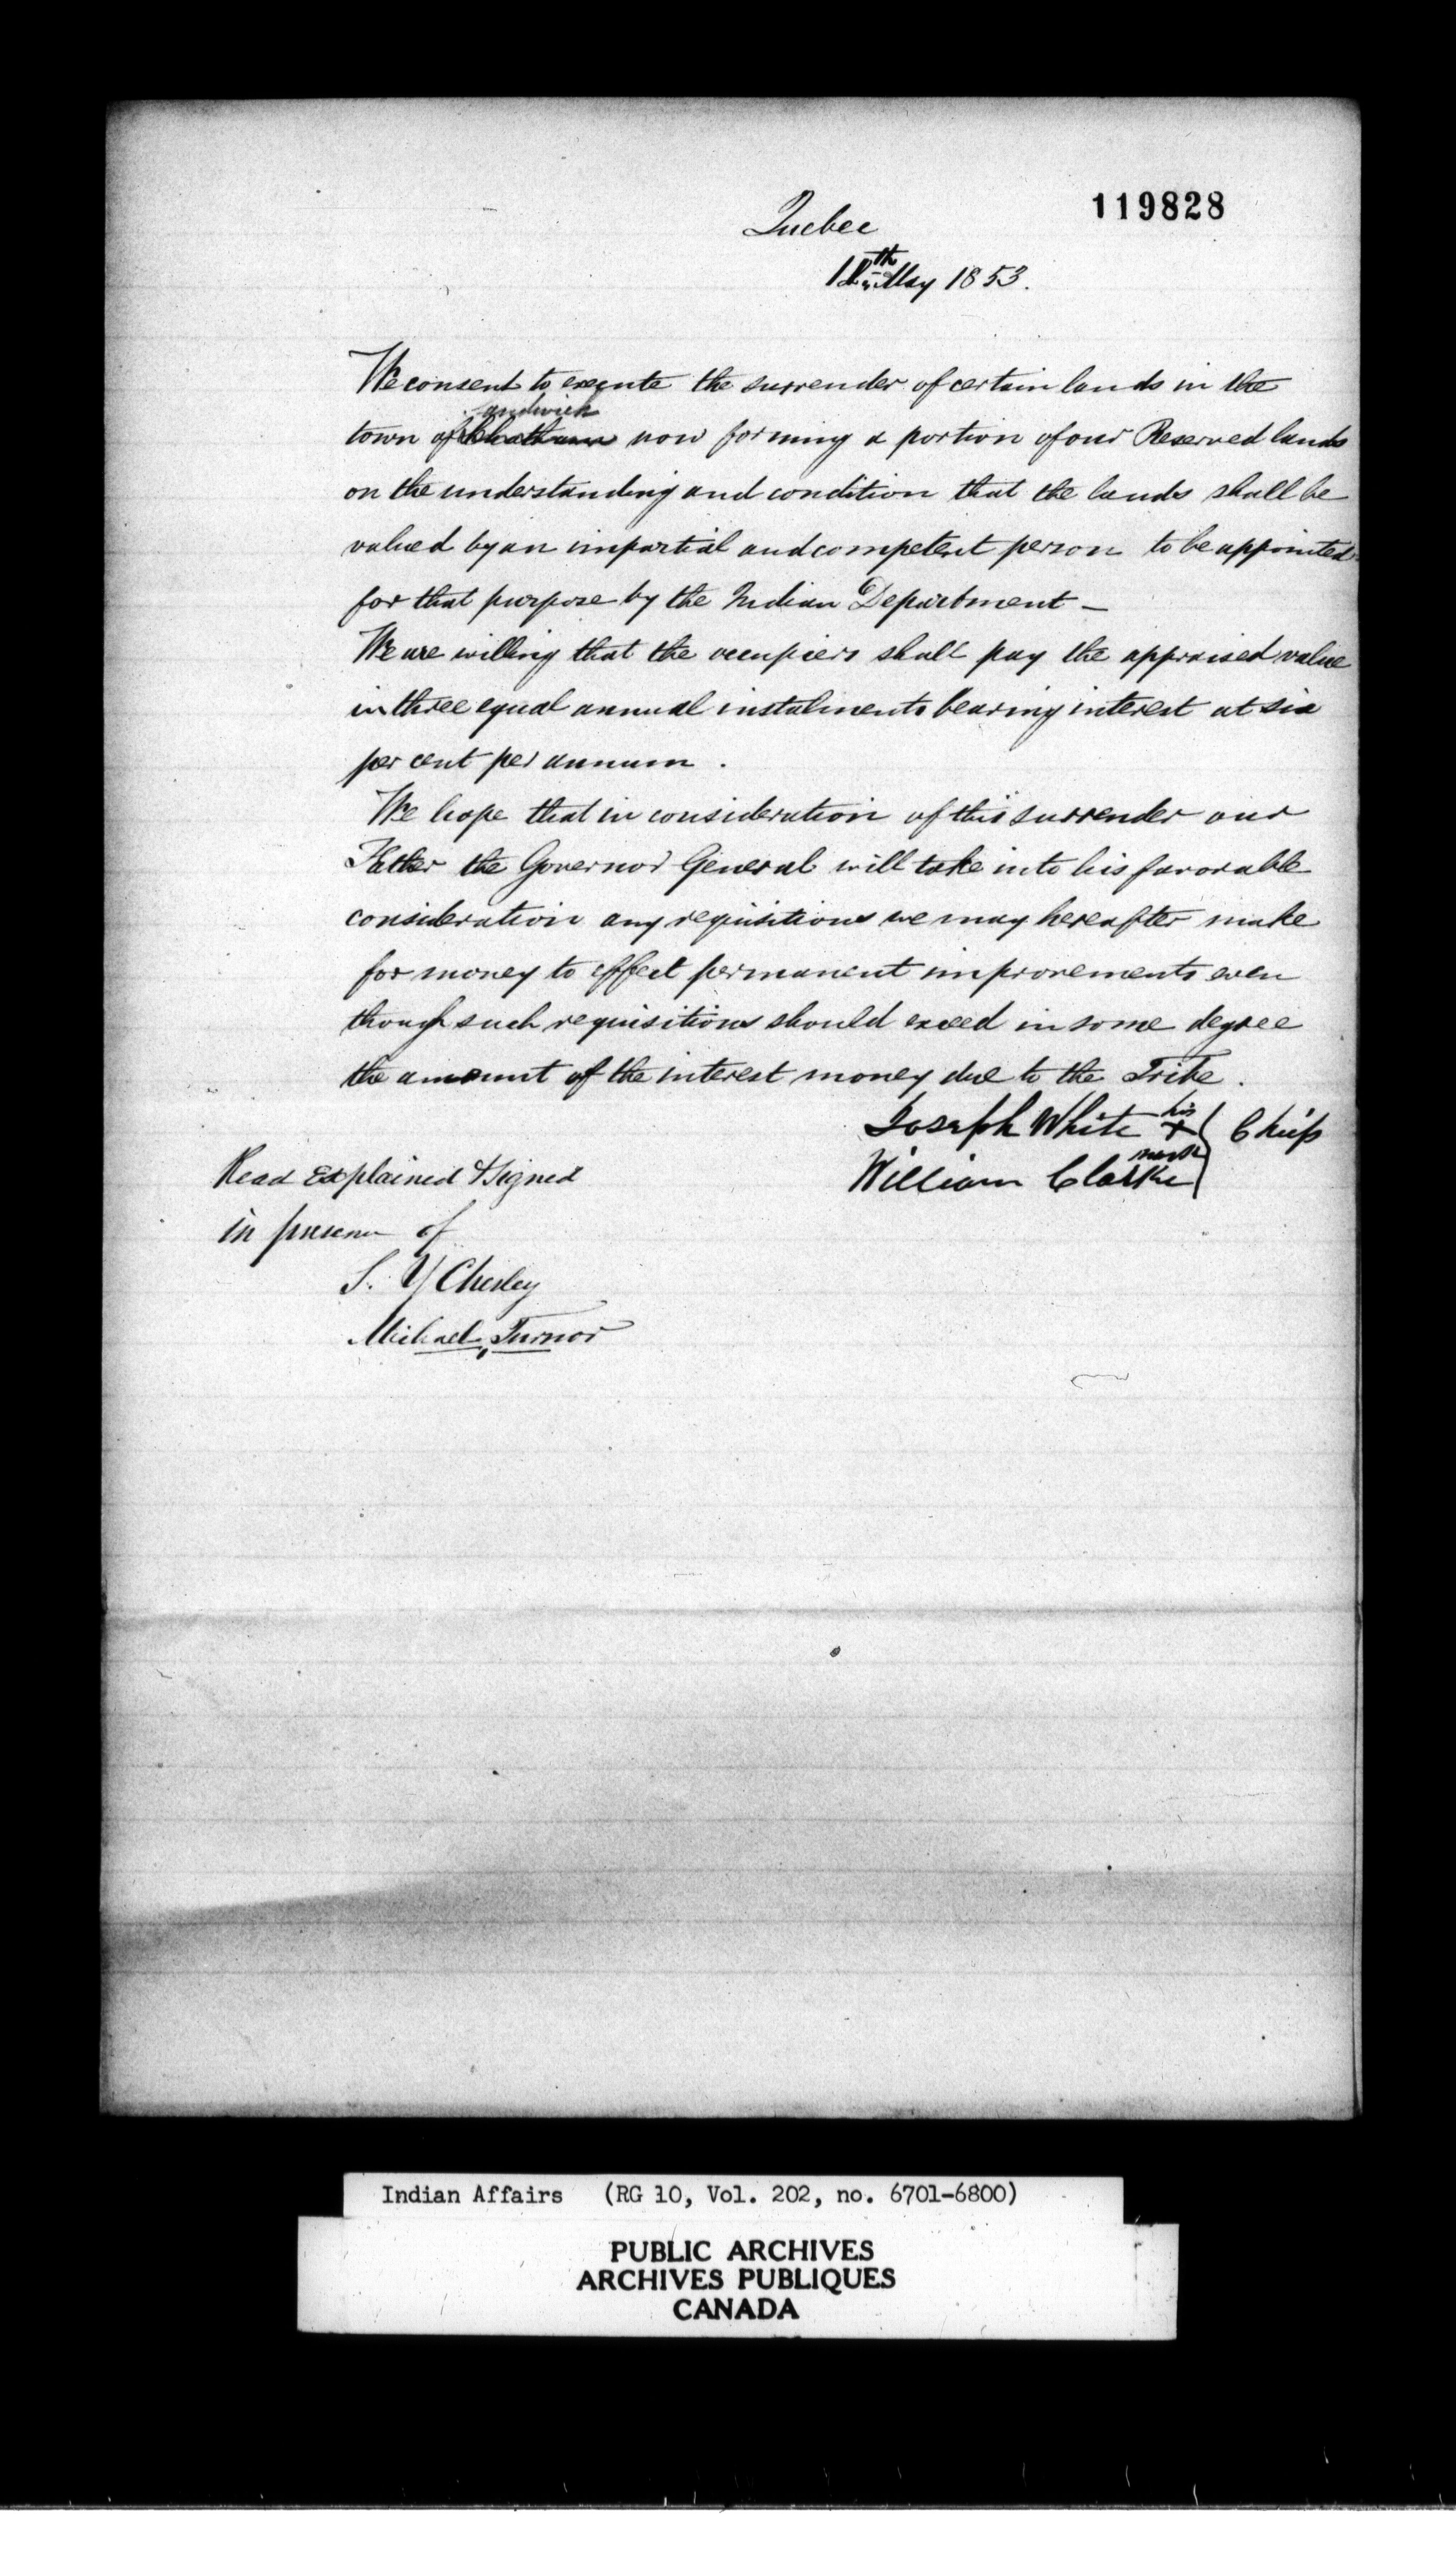 119828
Quebec
12th May 1853.
We consent to execute the surrender of certain lands in the
andwich
town of Chatham now forming a portion of our Reserved lands
on the understanding and condition that the lands shall be
valued by an impartial and competent person to be appointed
for that purpose by the Indian Department —
We are willing that the occupiers shall pay the appraised value
in three equal annual instalments bearing interest at six
per cent per annum .
We hope that in consideration of this surrender our
Father the Governor General will take into his favorable
consideration any requisitions we may hereafter make
for money to effect permanent improvements even
though such requisitions should exceed in some degree
the amount of the interest money due to the Tribe .
Joseph White his X mark } Chiefs
William Clarke
Read Explained & Signed
in presence of
S. Y Chesley
Michael Turnor
Indian Affairs (RG 10, Vol. 202, no. 6701-6800)
PUBLIC ARCHIVES
ARCHIVES PUBLIQUES
CANADA